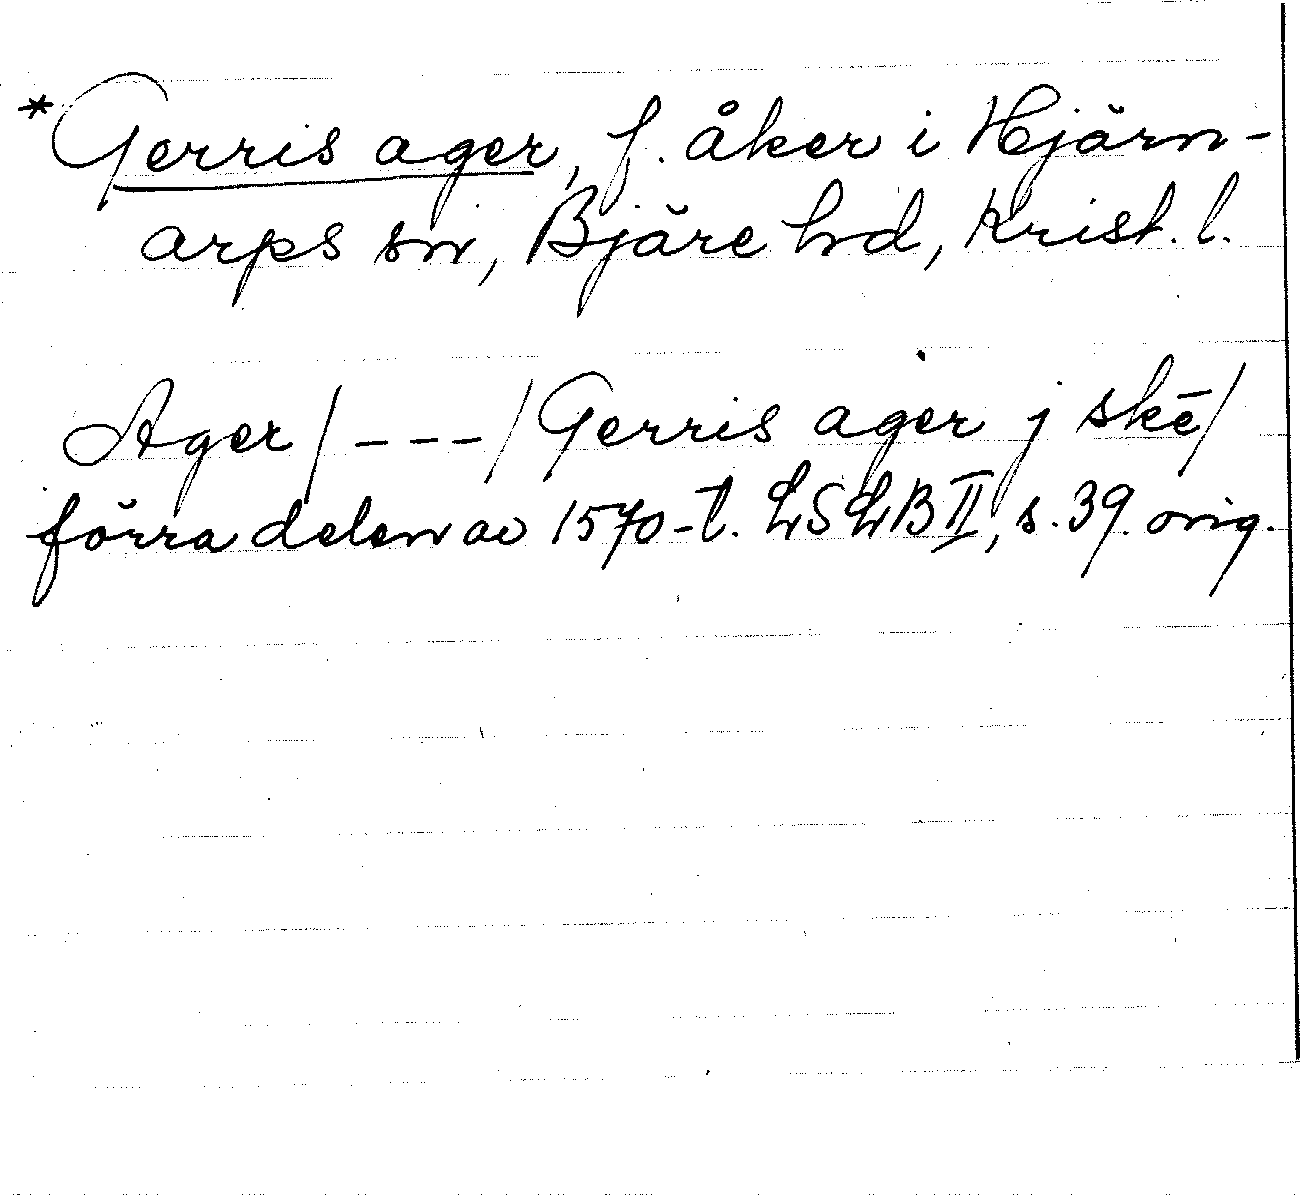 *Gerris ager, f. åker i Hjärn-
arps sn, Bjäre hd, Krist. l.
Ager/---/Gerris ager j skē/
förra delen av 1570-t. LSLB II, s. 39. orig.